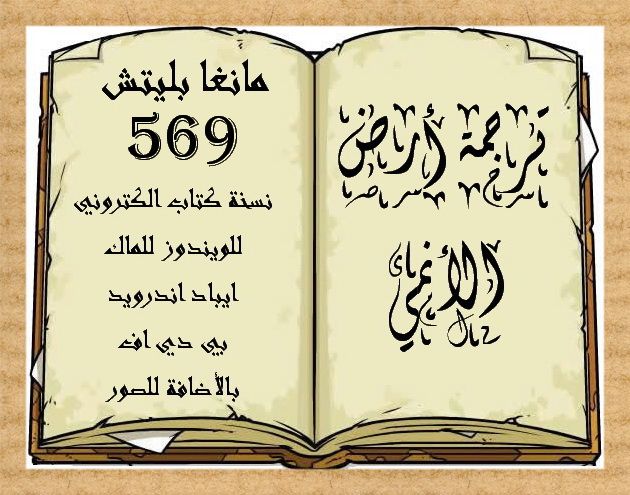 ترجمة أرض
الأنمي
مانغا بليتش
569
نسخة كتاب الكتروني
للويندوز للماك
ايباد اندرويد
بي دي اف
بالأضافة للصور